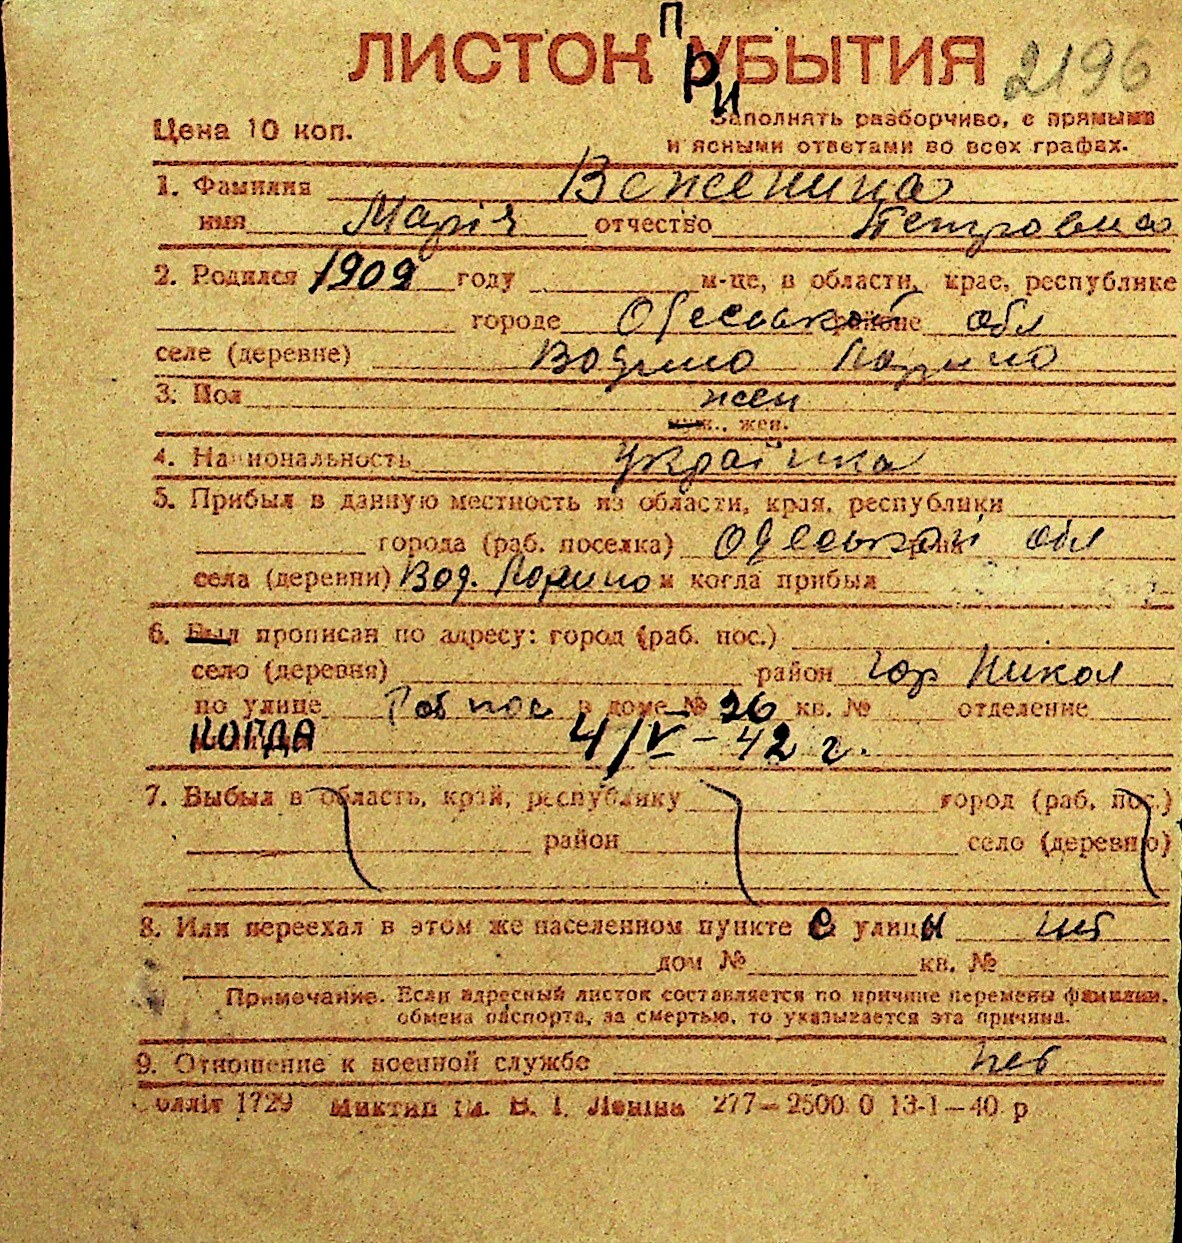 ЛИСТОК ПРИБЫТИЯ 2196
Цена 10 коп.
Заполнять разборчиво, с прямыми
и ясными ответами во всех графах.
1. Фамилия
имя Марія отчество Петровна
2. Родился 1909 году м-це, в области, крае, республике
городе Одеськой районе обл
селе (деревне) Водяно
3. Пол жен
муж., жен.
4. Национальность Українка
5. Прибыл в данную местность из области, края, республики
города (раб. поселка) Одеськой обл
села (деревни) Вод. и когда прибыл
6. Был прописан по адресу: город (раб. пос.)
село (деревня) район гор Никол
по улице Раб пос в доме № 26 кв. № отделение
КОГДА 4/V-42 г.
7. Выбыл в область, край, республику город (раб. пос.)
район село (деревню)
8. Или переехал в этом же населенном пункте с улицы
дом № кв. №
Примечание. Если адресный листок составляется по причине перемены фамилии,
обмена паспорта, за смертью, то указывается эта причина.
9. Отношение к военной службе нет
олліт 1729 Миктип ім. В. І. Леніна 277—2500 0 13-1—40 р